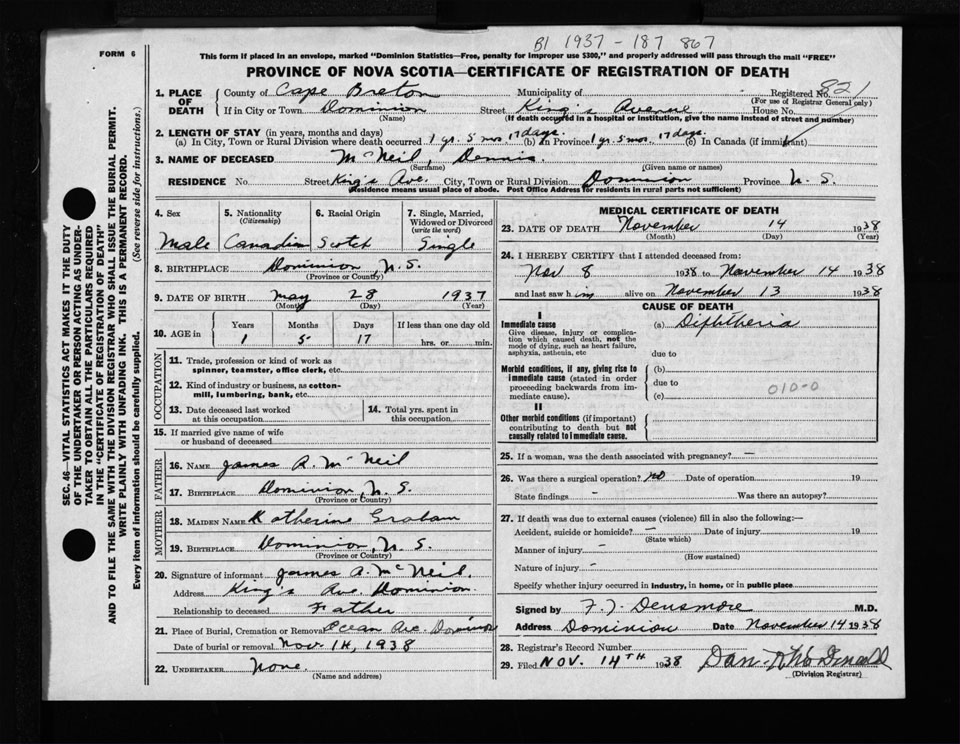 B1 1937 - 187 867
FORM 6
This form if placed in an envelope, marked "Dominion Statistics—Free, penalty for improper use $300," and properly addressed will pass through the mail "FREE"
PROVINCE OF NOVA SCOTIA—CERTIFICATE OF REGISTRATION OF DEATH
SEC. 46—VITAL STATISTICS ACT MAKES IT THE DUTY
OF THE UNDERTAKER OR PERSON ACTING AS UNDER-
TAKER TO OBTAIN ALL THE PARTICULARS REQUIRED
IN THE "CERTIFICATE OF REGISTRATION OF DEATH"
AND TO FILE THE SAME WITH THE DIVISION REGISTRAR WHO SHALL ISSUE THE BURIAL PERMIT.
WRITE PLAINLY WITH UNFADING INK. THIS IS A PERMANENT RECORD.
Every item of information should be carefully supplied. (See reverse side for instructions.)
1. PLACE OF DEATH County of Cape Breton Municipality of Registered No. 821
(For use of Registrar General only)
If in City or Town Dominion Street King's Avenue House No.
(Name) (If death occurred in a hospital or institution, give the name instead of street and number)
2. LENGTH OF STAY (in years, months and days)
(a) In City, Town or Rural Division where death occurred 1 yr. 5 mos. 17 days. (b) In Province 1 yr. 5 mos. 17 days. (c) In Canada (if immigrant)
3. NAME OF DECEASED McNeil, Dennis.
(Surname) (Given name or names)
RESIDENCE No. Street King's Ave. City, Town or Rural Division Dominion Province N. S.
(Residence means usual place of abode. Post Office Address for residents in rural parts not sufficient)
4. Sex 5. Nationality (Citizenship) 6. Racial Origin 7. Single, Married, Widowed or Divorced (write the word)
Male Canadian Scotch Single
8. BIRTHPLACE Dominion, N.S.
(Province or Country)
9. DATE OF BIRTH May 28 1937
(Month) (Day) (Year)
10. AGE in Years Months Days If less than one day old
1 5 17 hrs. or min.
OCCUPATION
11. Trade, profession or kind of work as
spinner, teamster, office clerk, etc.
12. Kind of industry or business, as cotton-
mill, lumbering, bank, etc.
13. Date deceased last worked
at this occupation
14. Total yrs. spent in
this occupation
15. If married give name of wife
or husband of deceased
FATHER
16. NAME James A. McNeil
17. BIRTHPLACE Dominion, N.S.
(Province or Country)
MOTHER
18. MAIDEN NAME Katherine Graham
19. BIRTHPLACE Dominion, N.S.
(Province or Country)
20. Signature of informant James A. McNeil.
Address King's Ave. Dominion.
Relationship to deceased Father
21. Place of Burial, Cremation or Removal Ocean Ave. Dominion
Date of burial or removal Nov. 14, 1938
22. UNDERTAKER None.
(Name and address)
MEDICAL CERTIFICATE OF DEATH
23. DATE OF DEATH November 14 1938
(Month) (Day) (Year)
24. I HEREBY CERTIFY that I attended deceased from:
Nov 8 1938 to November 14 1938
and last saw him alive on November 13 1938
CAUSE OF DEATH
I
Immediate cause
Give disease, injury or complica-
tion which caused death, not the
mode of dying, such as heart failure,
asphyxia, asthenia, etc
(a) Diphtheria
due to
Morbid conditions, if any, giving rise to
immediate cause (stated in order
proceeding backwards from im-
mediate cause).
(b)
due to
(c)
010-0
II
Other morbid conditions (if important)
contributing to death but not
causally related to immediate cause.
25. If a woman, was the death associated with pregnancy? —
26. Was there a surgical operation? no Date of operation 19
State findings - Was there an autopsy?
27. If death was due to external causes (violence) fill in also the following:—
Accident, suicide or homicide? - Date of injury 19
(State which)
Manner of injury -
(How sustained)
Nature of injury -
Specify whether injury occurred in industry, in home, or in public place
Signed by F. J. Densmore M.D.
Address Dominion Date November 14 1938
28. Registrar's Record Number
29. Filed NOV. 14TH 1938
(Division Registrar)